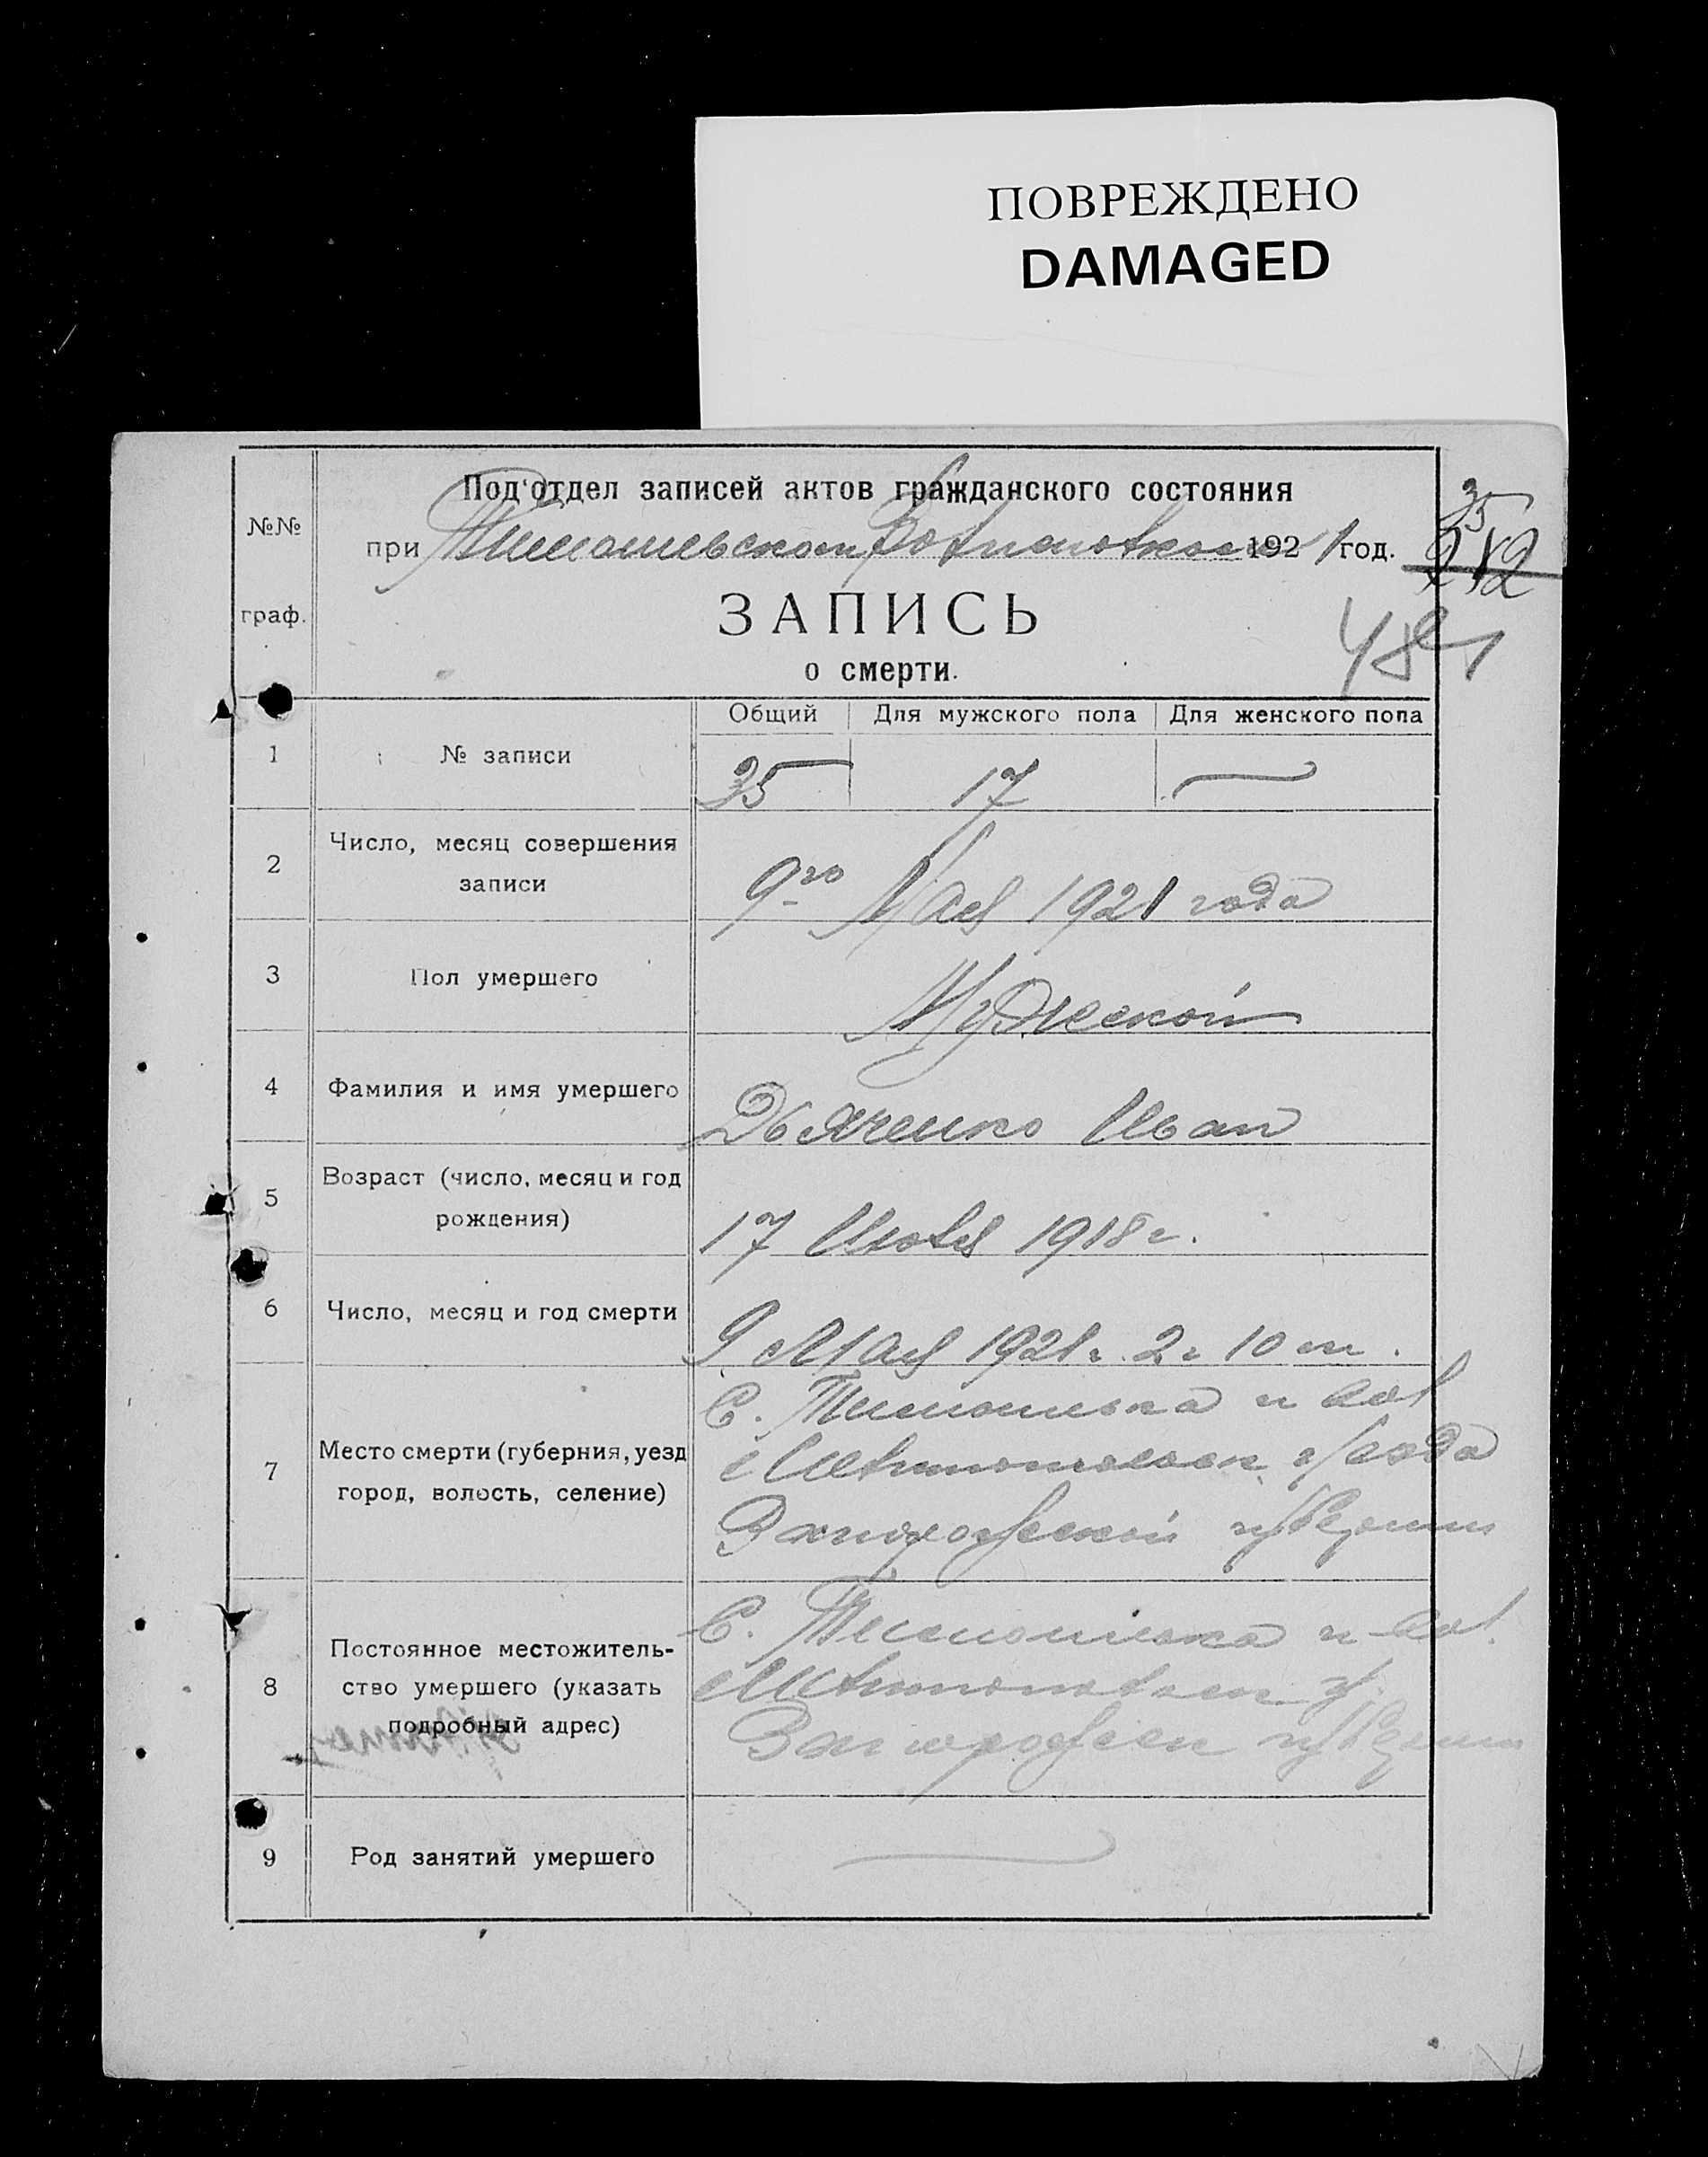 ПОВРЕЖДЕНО
DAMAGED
Под'отдел записей актов гражданского состояния
№№ граф.
при Тимошевском Волисполкоме 1921 год.
35
212
481
ЗАПИСЬ
о смерти.
Общий Для мужского пола Для женского пола
1 № записи 35 17 —
2 Число, месяц совершения
записи 9го Мая 1921 года
3 Пол умершего Мужеской
4 Фамилия и имя умершего Дьяченко Иван
5 Возраст (число, месяц и год
рождения) 17 Июля 1918 г.
6 Число, месяц и год смерти 9 Мая 1921 г. 2 г 10 м.
С. Тимошевка и вол
7 Место смерти (губерния, уезд
город, волость, селение) Мелитопольск уезда
Запорожской губернии
С. Тимошевка и вол.
8 Постоянное местожитель-
ство умершего (указать
подробный адрес) Мелитопольск у.
Запорожск губернии
9 Род занятий умершего —